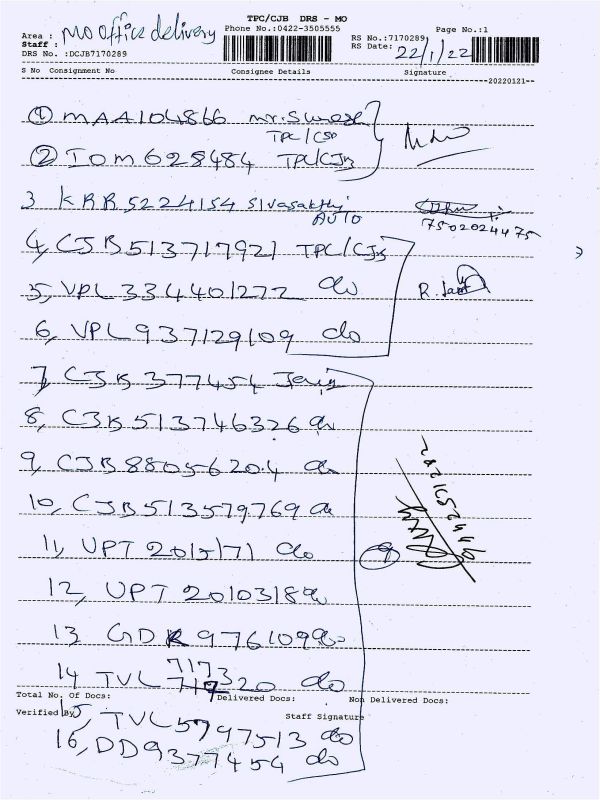 TPC/CJB DRS - MO
Area : MO Office delivery
Phone No.:0422-3505555
RS No.:7170289
Page No.:1
Staff :
RS Date: 22/1/22
DRS No. :DCJB7170289
S No Consignment No Consignee Details Signature
20220121
① MAA104866 Mr. Suresh
TPC/CSD
② IOM628484 TPC/CJB
3 KRR5224154 Sivasakthi
AUTO
7502024475
4, CJB513717921 TPC/CJB
5, VPL334401272 do
R.
6, VPL937129109 do
7, CJB377454
8, CJB513746326 do
9, CJB88056204 do
10, CJB513579769 do
11, UPT2015171 do
12, UPT2010318 do
13, GDR976109 do
7173
14 TVL 20 do
Total No. Of Docs: Delivered Docs: Non Delivered Docs:
Verified By Staff Signature
15, TVL5797513 do
16, DD9377454 do